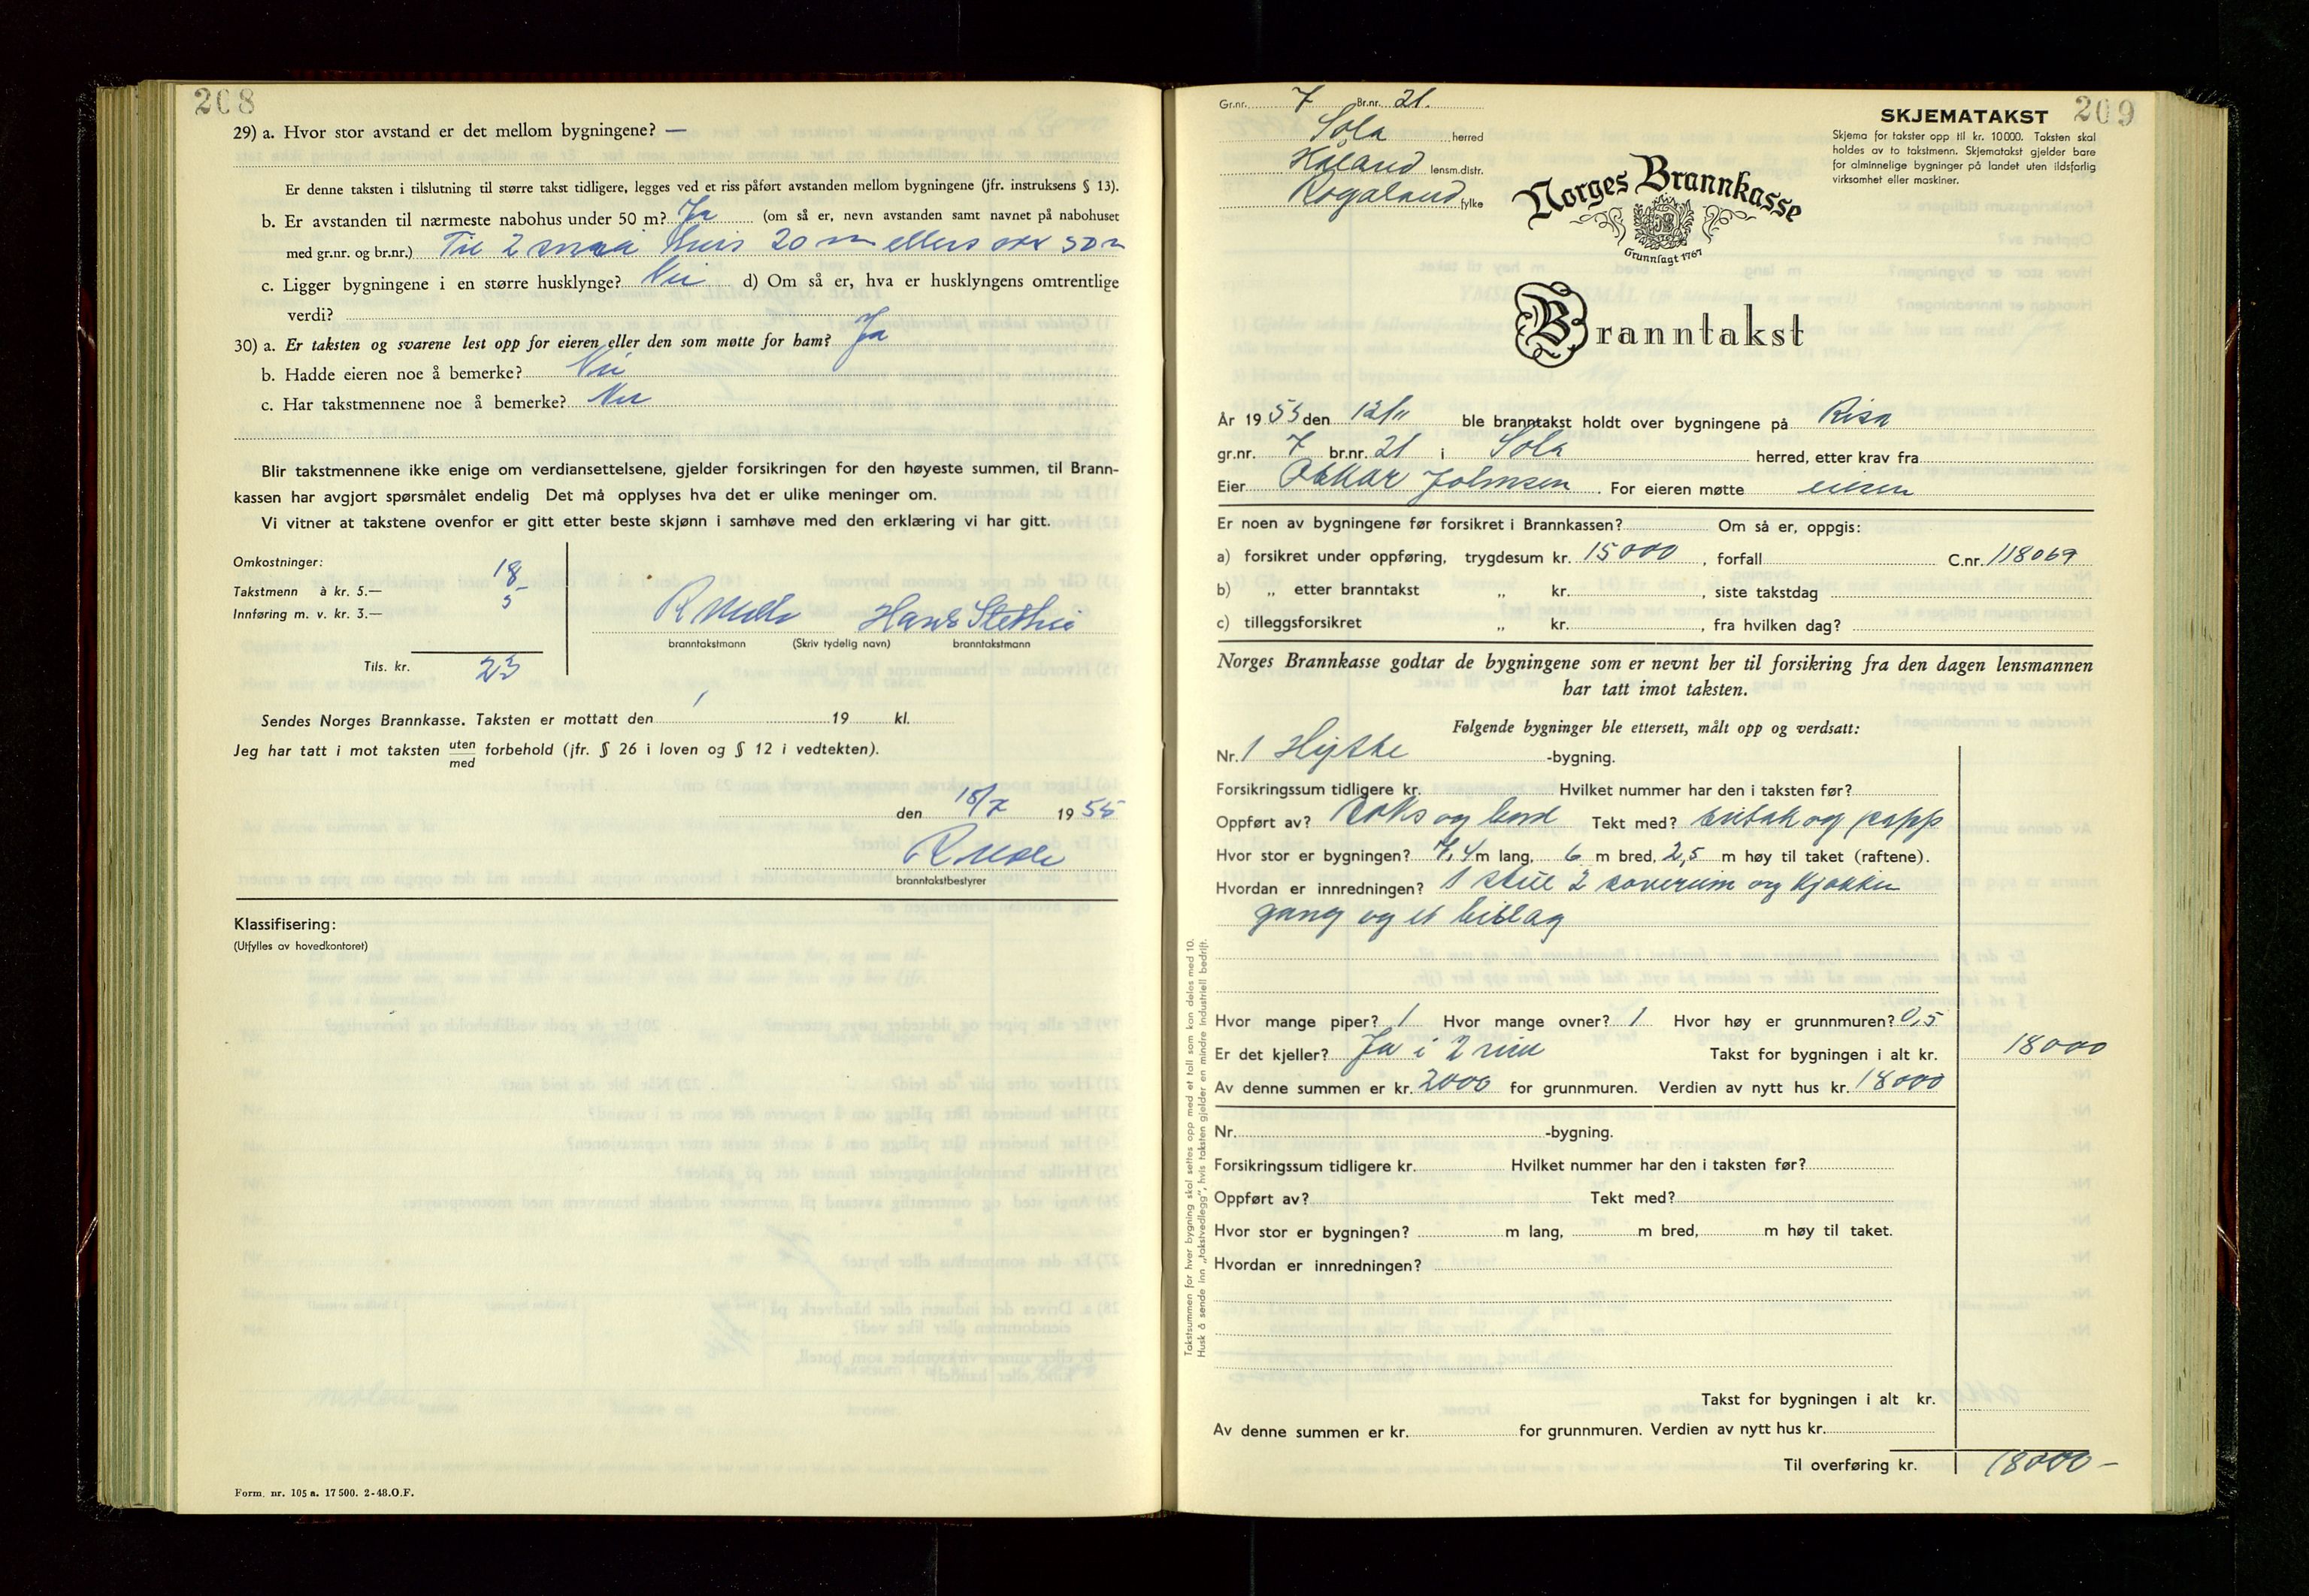 208
29) a. Hvor stor avstand er det mellom bygningene? —
Er denne taksten i tilslutning til større takst tidligere, legges ved et riss påført avstanden mellom bygningene (jfr. instruksens § 13).
b. Er avstanden til nærmeste nabohus under 50 m? Ja (om så er, nevn avstanden samt navnet på nabohuset
med gr.nr. og br.nr.) Til 2 smaa huis 20 m ellers 50 m
c. Ligger bygningene i en større husklynge? Nei d) Om så er, hva er husklyngens omtrentlige
verdi?
30) a. Er taksten og svarene lest opp for eieren eller den som møtte for ham? Ja
b. Hadde eieren noe å bemerke? Nei
c. Har takstmennene noe å bemerke? Nei
Blir takstmennene ikke enige om verdiansettelsene, gjelder forsikringen for den høyeste summen, til Brann-
kassen har avgjort spørsmålet endelig Det må opplyses hva det er ulike meninger om.
Vi vitner at takstene ovenfor er gitt etter beste skjønn i samhøve med den erklæring vi har gitt.
Omkostninger:
Takstmenn à kr. 5.— 18
Innføring m. v. kr. 3.— 5
Hans
branntakstmann (Skriv tydelig navn) branntakstmann
Tils. kr. 23
Sendes Norges Brannkasse. Taksten er mottatt den 19 kl.
Jeg har tatt i mot taksten uten forbehold (jfr. § 26 i loven og § 12 i vedtekten).
med
den 18/7 1955
branntakstbestyrer
Klassifisering:
(Utfylles av hovedkontoret)
Form. nr. 105 a. 17 500. 2-48.O.F.
209
Gr.nr. 7 Br.nr. 21.
Sola herred
Håland lensm.distr.
Rogaland fylke
SKJEMATAKST
Skjema for takster opp til kr. 10 000. Taksten skal
holdes av to takstmenn. Skjematakst gjelder bare
for alminnelige bygninger på landet uten ildsfarlig
virksomhet eller maskiner.
Norges Brannkasse
Grunnlagt 1767
Branntakst
År 1955 den 12/11 ble branntakst holdt over bygningene på Risa
gr.nr. 7 br.nr. 21 i Sola herred, etter krav fra
Eier Oskar Johnsen. For eieren møtte eieren
Er noen av bygningene før forsikret i Brannkassen? Om så er, oppgis:
a) forsikret under oppføring, trygdesum kr. 15000, forfall C.nr. 118069
b) „ etter branntakst „ kr. , siste takstdag
c) tilleggsforsikret „ kr. , fra hvilken dag?
Norges Brannkasse godtar de bygningene som er nevnt her til forsikring fra den dagen lensmannen
har tatt imot taksten.
Følgende bygninger ble ettersett, målt opp og verdsatt:
Nr. 1 Hytte -bygning.
Forsikringssum tidligere kr. Hvilket nummer har den i taksten før?
Oppført av? og bord Tekt med? og papp
Hvor stor er bygningen? 7,4 m lang, 6 m bred, 2,5 m høy til taket (raftene).
Hvordan er innredningen? 1 stue 2 soverum og kjøkken
gang og et bislag
Hvor mange piper? 1 Hvor mange ovner? 1 Hvor høy er grunnmuren? 0,5
Er det kjeller? Ja i 2 rum Takst for bygningen i alt kr. 18000
Av denne summen er kr. 2000 for grunnmuren. Verdien av nytt hus kr. 18000
Nr. -bygning.
Forsikringssum tidligere kr. Hvilket nummer har den i taksten før?
Oppført av? Tekt med?
Hvor stor er bygningen? m lang, m bred, m høy til taket.
Hvordan er innredningen?
Takst for bygningen i alt kr.
Av denne summen er kr. for grunnmuren. Verdien av nytt hus kr.
Til overføring kr. 18000 –
Takstsummen for hver bygning skal settes opp med et tall som kan deles med 10.
Husk å sende inn „takstvedlegg", hvis taksten gjelder en mindre industriell bedrift.